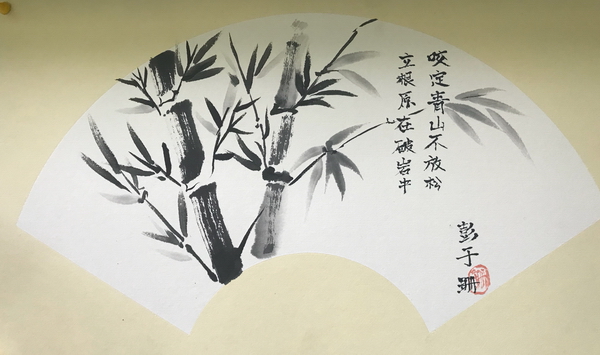 咬定青山不放松
立根原在破岩中
彭于珊